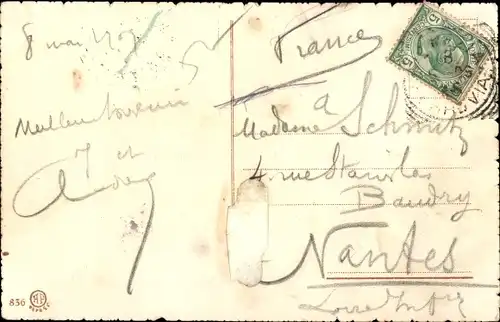 8 mai 1907
Meilleur souvenir
et
France
à
Madame Schmitz
4 rue Stanislas
Baudry
Nantes
Loire Infre
836